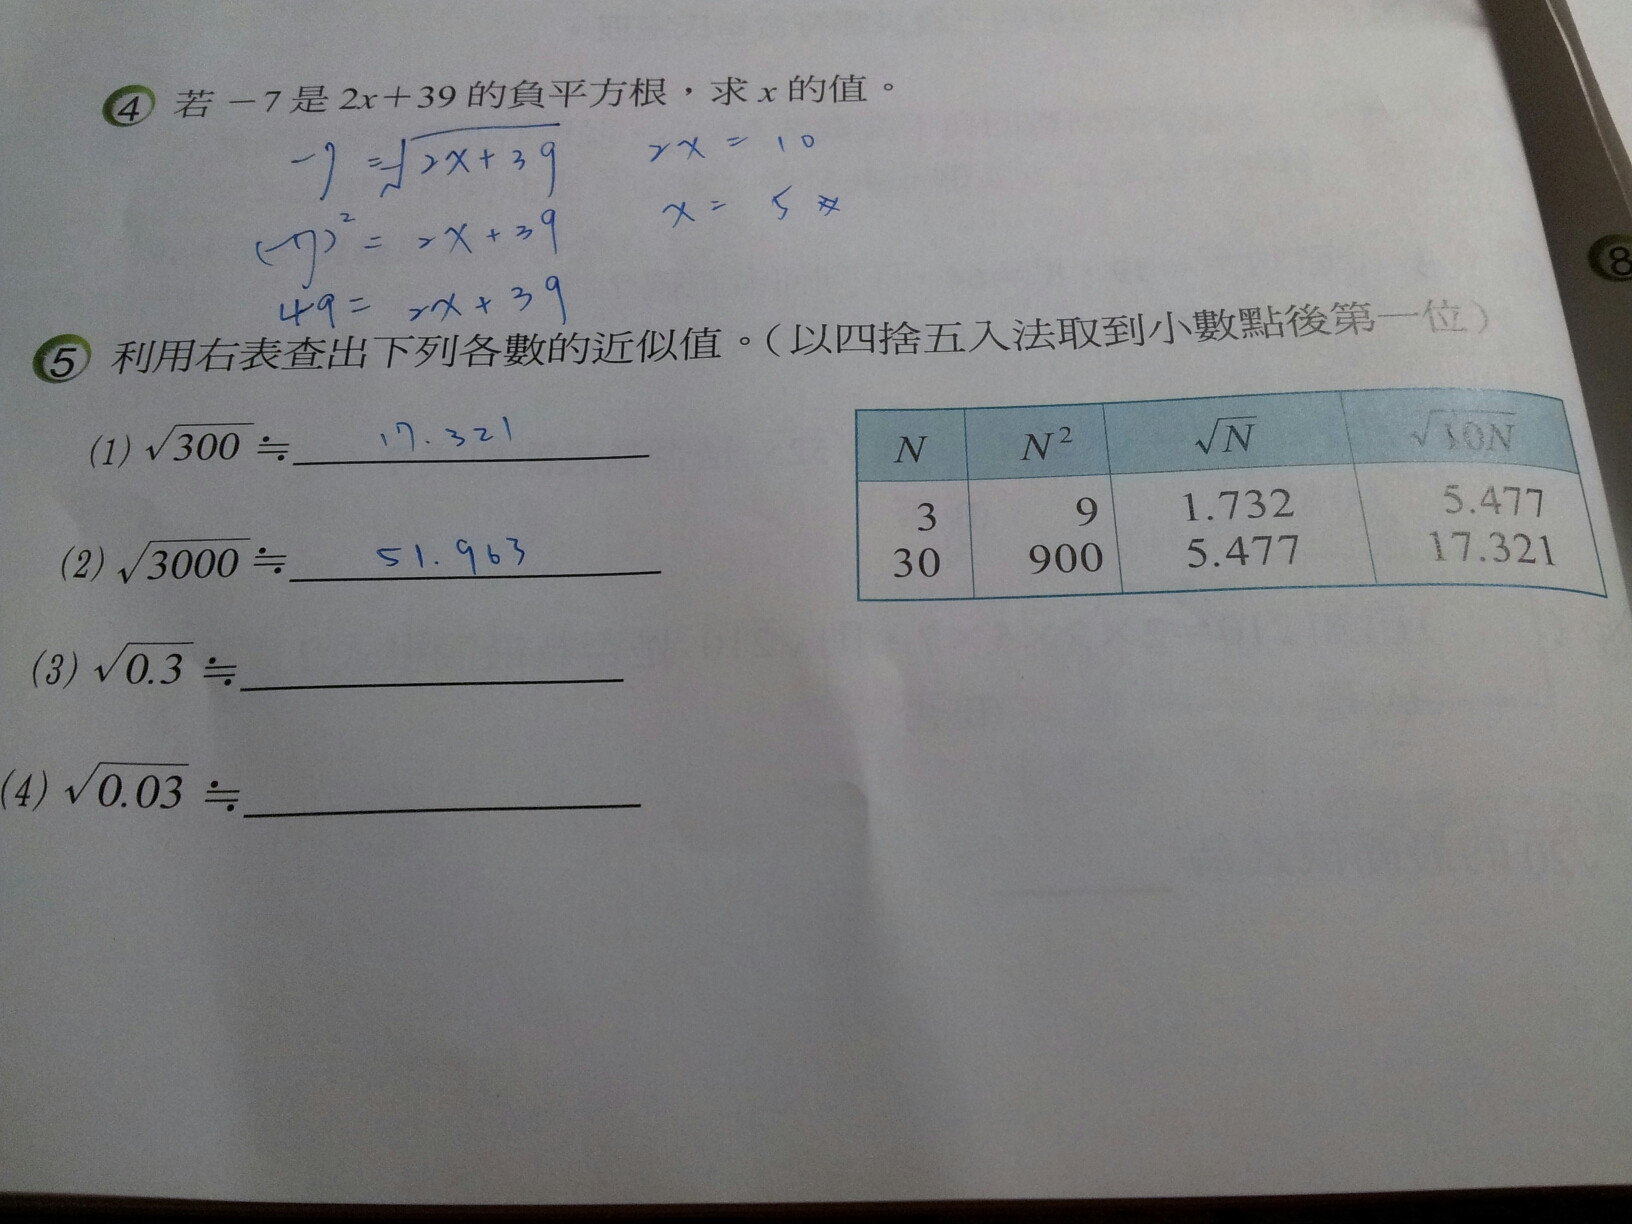 ④ 若－7是2x＋39的負平方根，求x的值。
-7 = -√2x+39 2x = 10
(-7)² = 2x+39 x = 5 #
49 = 2x+39
⑤ 利用右表查出下列各數的近似值。（以四捨五入法取到小數點後第一位）
(1) √300 ≒ 17.321
(2) √3000 ≒ 51.963
(3) √0.3 ≒
(4) √0.03 ≒
N N² √N √10N
3 9 1.732 5.477
30 900 5.477 17.321
8